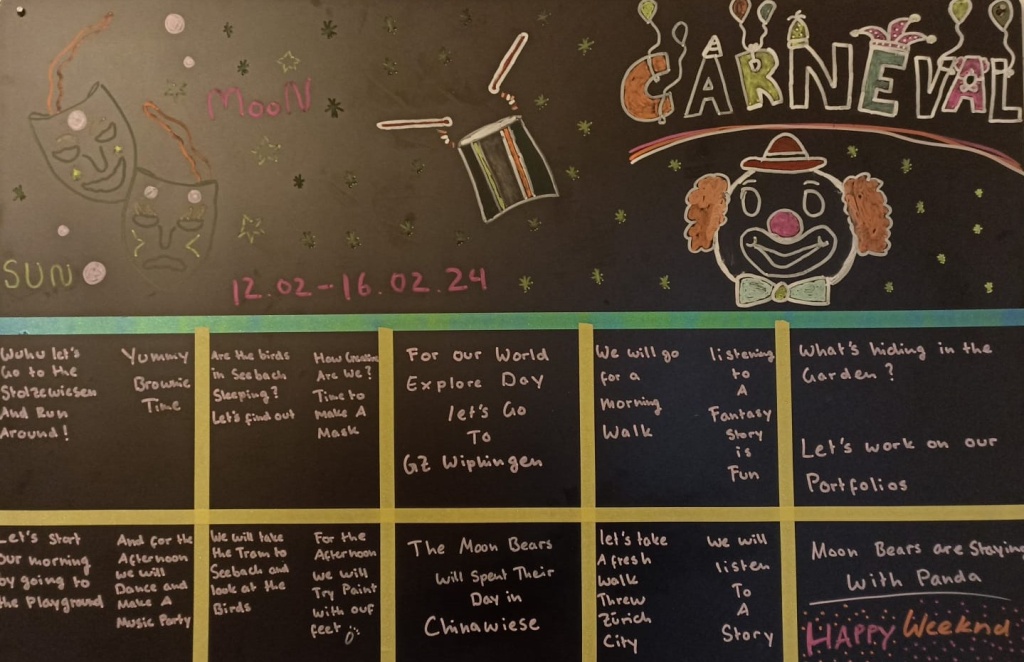 CARNEVAL
MOON
SUN
12.02-16.02.24
Wuhu let's
Go to the
Stolzewiesen
And Run
Around!
Yummy
Brownie
Time
Are the birds
in Seebach
Sleeping?
Let's find out
How Creative
Are We?
Time to
Make A
Mask
For our World
Explore Day
let's Go
To
GZ Wipkingen
We will go
for a
morning
Walk
listening
to
A
Fantasy
Story
is
Fun
What's hiding in the
Garden?
Let's work on our
Portfolios
Let's Start
our morning
by going to
the Playground
And for the
Afternoon
we will
Dance and
Make A
Music Party
We will take
the Tram to
Seebach and
look at the
Birds
For the
Afternoon
we will
Try Paint
with our
feet
The Moon Bears
Will Spent Their
Day in
Chinawiese
let's take
A fresh
Walk
Threw
Zürich
City
We will
listen
To
A
Story
Moon Bears are Staying
With Panda
HAPPY Weeknd